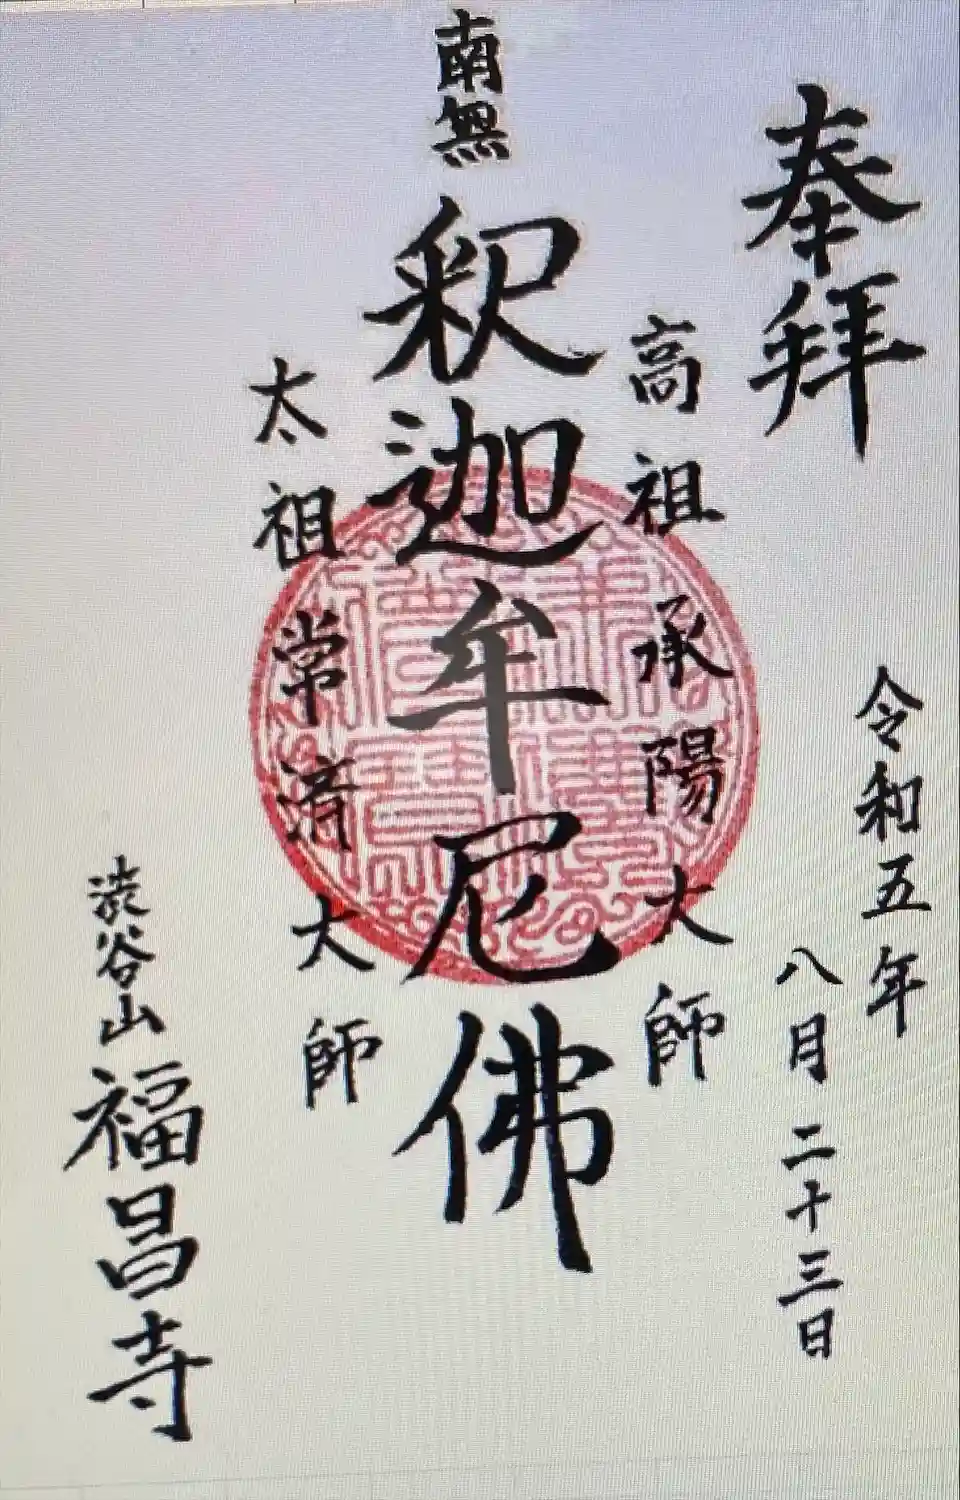 奉拜
令和五年
八月二十三日
高祖承陽大師
南無釈迦牟尼佛
太祖常済大師
渋谷山福昌寺